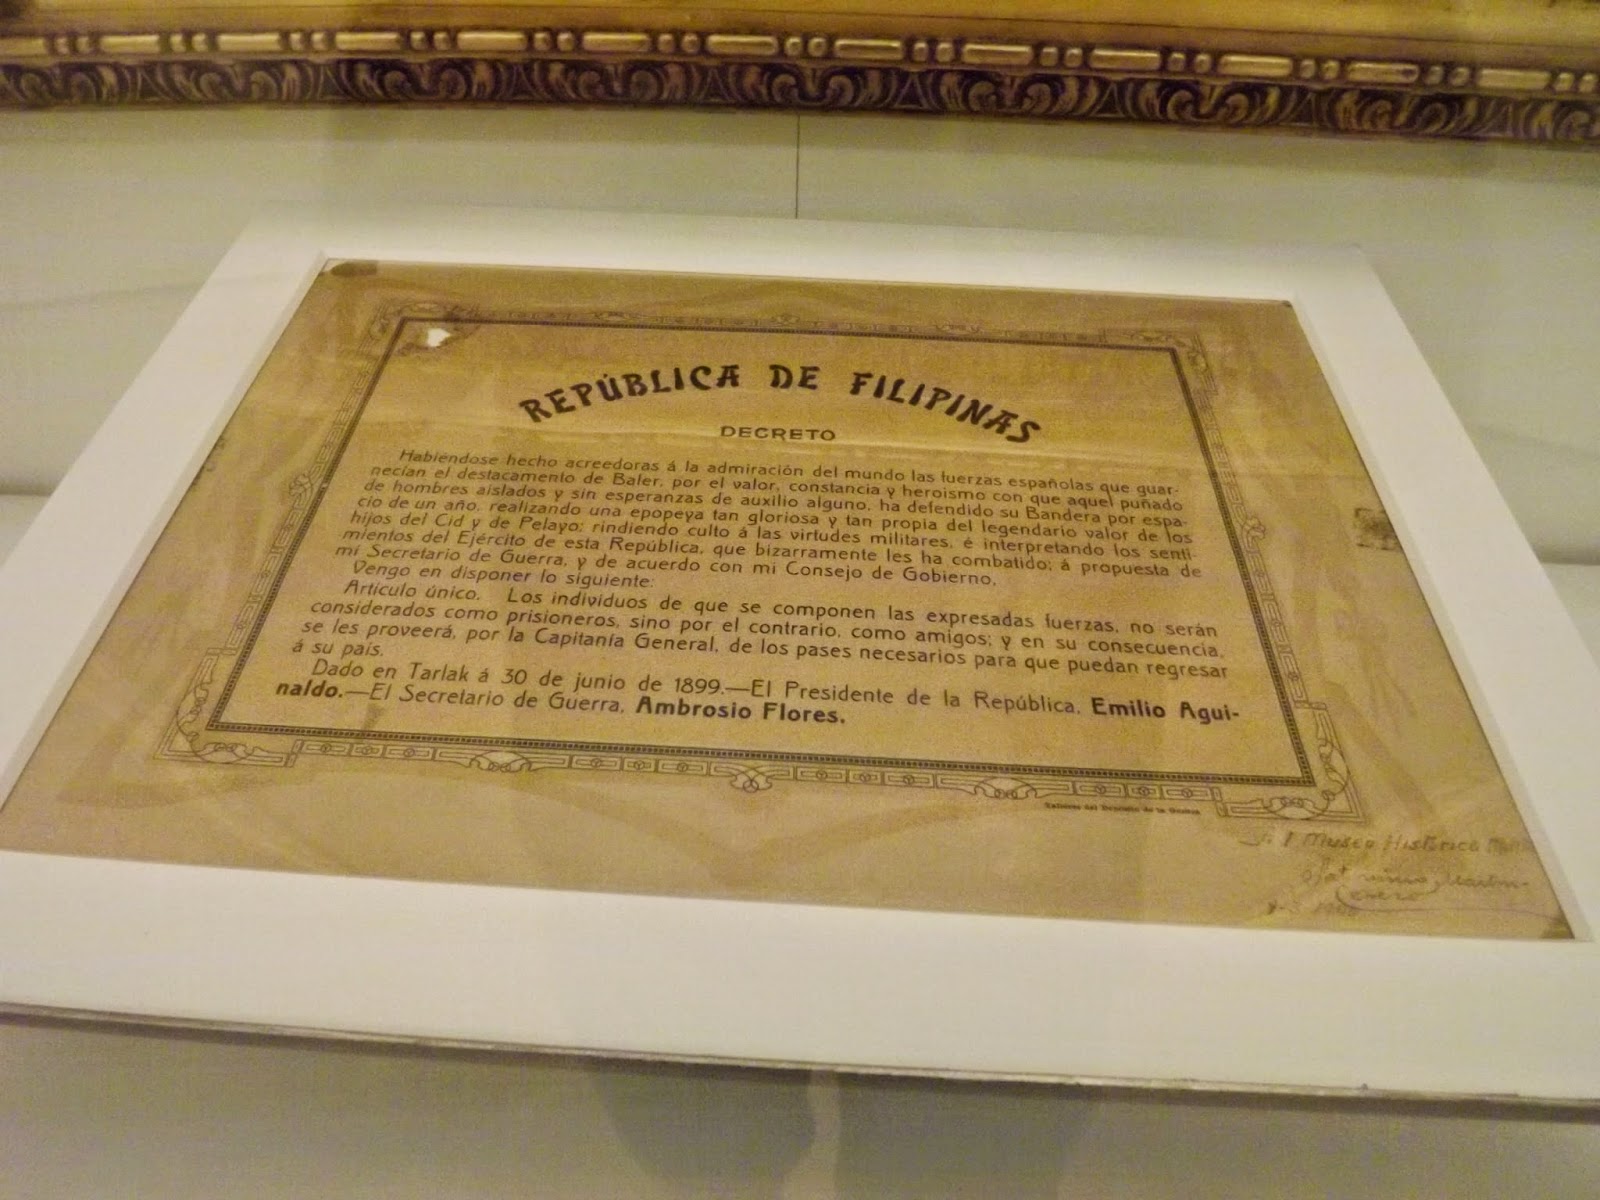 REPÚBLICA DE FILIPINAS
DECRETO
Habiéndose hecho acreedoras á la admiración del mundo las fuerzas españolas que guar-
necían el destacamento de Baler, por el valor, constancia y heroismo con que aquel puñado
de hombres aislados y sin esperanzas de auxilio alguno, ha defendido su Bandera por espa-
cio de un año, realizando una epopeya tan gloriosa y tan propia del legendario valor de los
hijos del Cid y de Pelayo; rindiendo culto á las virtudes militares, é interpretando los senti-
mientos del Ejército de esta República, que bizarramente les ha combatido; á propuesta de
mi Secretario de Guerra, y de acuerdo con mi Consejo de Gobierno,
Vengo en disponer lo siguiente:
Artículo único. Los individuos de que se componen las expresadas fuerzas, no serán
considerados como prisioneros, sino por el contrario, como amigos; y en su consecuencia,
se les proveerá, por la Capitanía General, de los pases necesarios para que puedan regresar
á su país.
Dado en Tarlak á 30 de junio de 1899.—El Presidente de la República, Emilio Agui-
naldo.—El Secretario de Guerra, Ambrosio Flores.
Talleres del Depósito de la Guerra
Museo Histórico